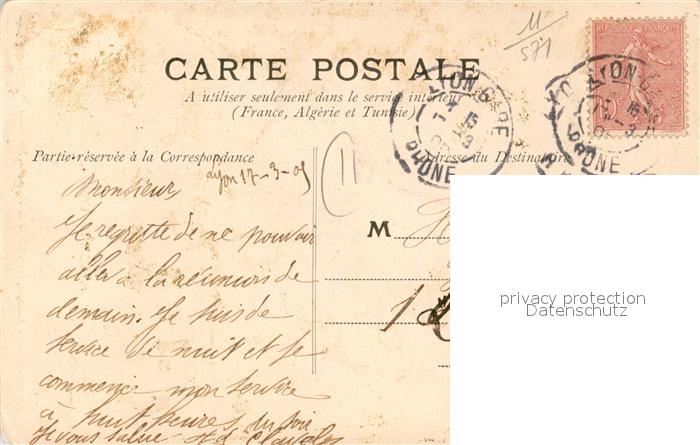 11
571
RÉPUBLIQUE FRANÇAISE
CARTE POSTALE
A utiliser seulement dans le service intérieur
(France, Algérie et Tunisie)
LYON GARE
RHONE
LYON GARE
RHONE
Partie réservée à la Correspondance
Adresse du Destinataire
Lyon 17-3-05
11
Monsieur,
Je regrette de ne pouvoir
aller à la réunion de
demain. Je suis de
service de nuit et je
commence mon service
à huit heures du soir
Je vous salue
M
privacy protection
Datenschutz